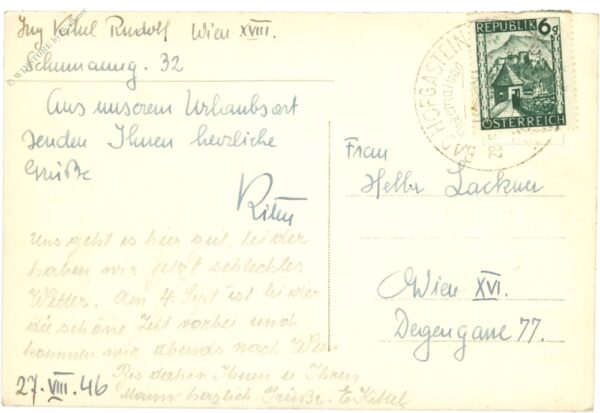 Ing Kikel Rudolf Wien XVIII.
Schumanng. 32
Aus unserem Urlaubsort
senden Ihnen herzliche
Grüße
Uns geht es hier gut, leider
haben wir jetzt schlechtes
Wetter. Am 4. Sept ist leider
die schöne Zeit vorbei und
kommen wir abends nach Wien
Bis dahin Ihnen u Ihrem
Mann herzlich Grüße. E Kikel
27. VIII. 46
REPUBLIK 6g
ÖSTERREICH
HOFGASTEIN
Frau
Lackner
Wien XVI.
Degengasse 77.